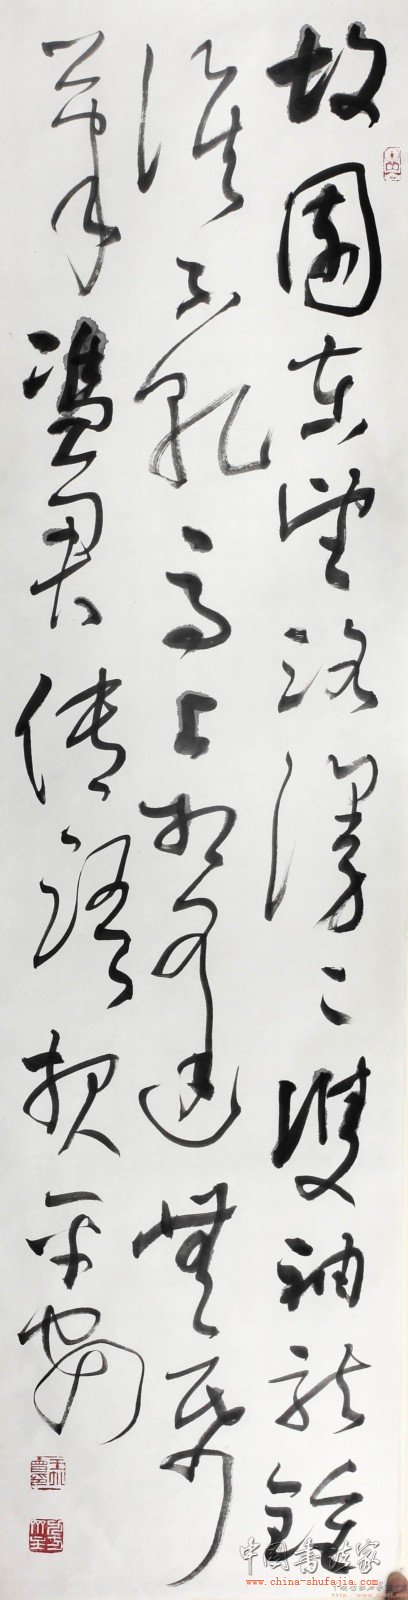 故園東望路漫〻雙袖龍鐘
淚不乾馬上相逢無帋
筆憑君傳語報平安
中国书法家
www.china-shufajia.com